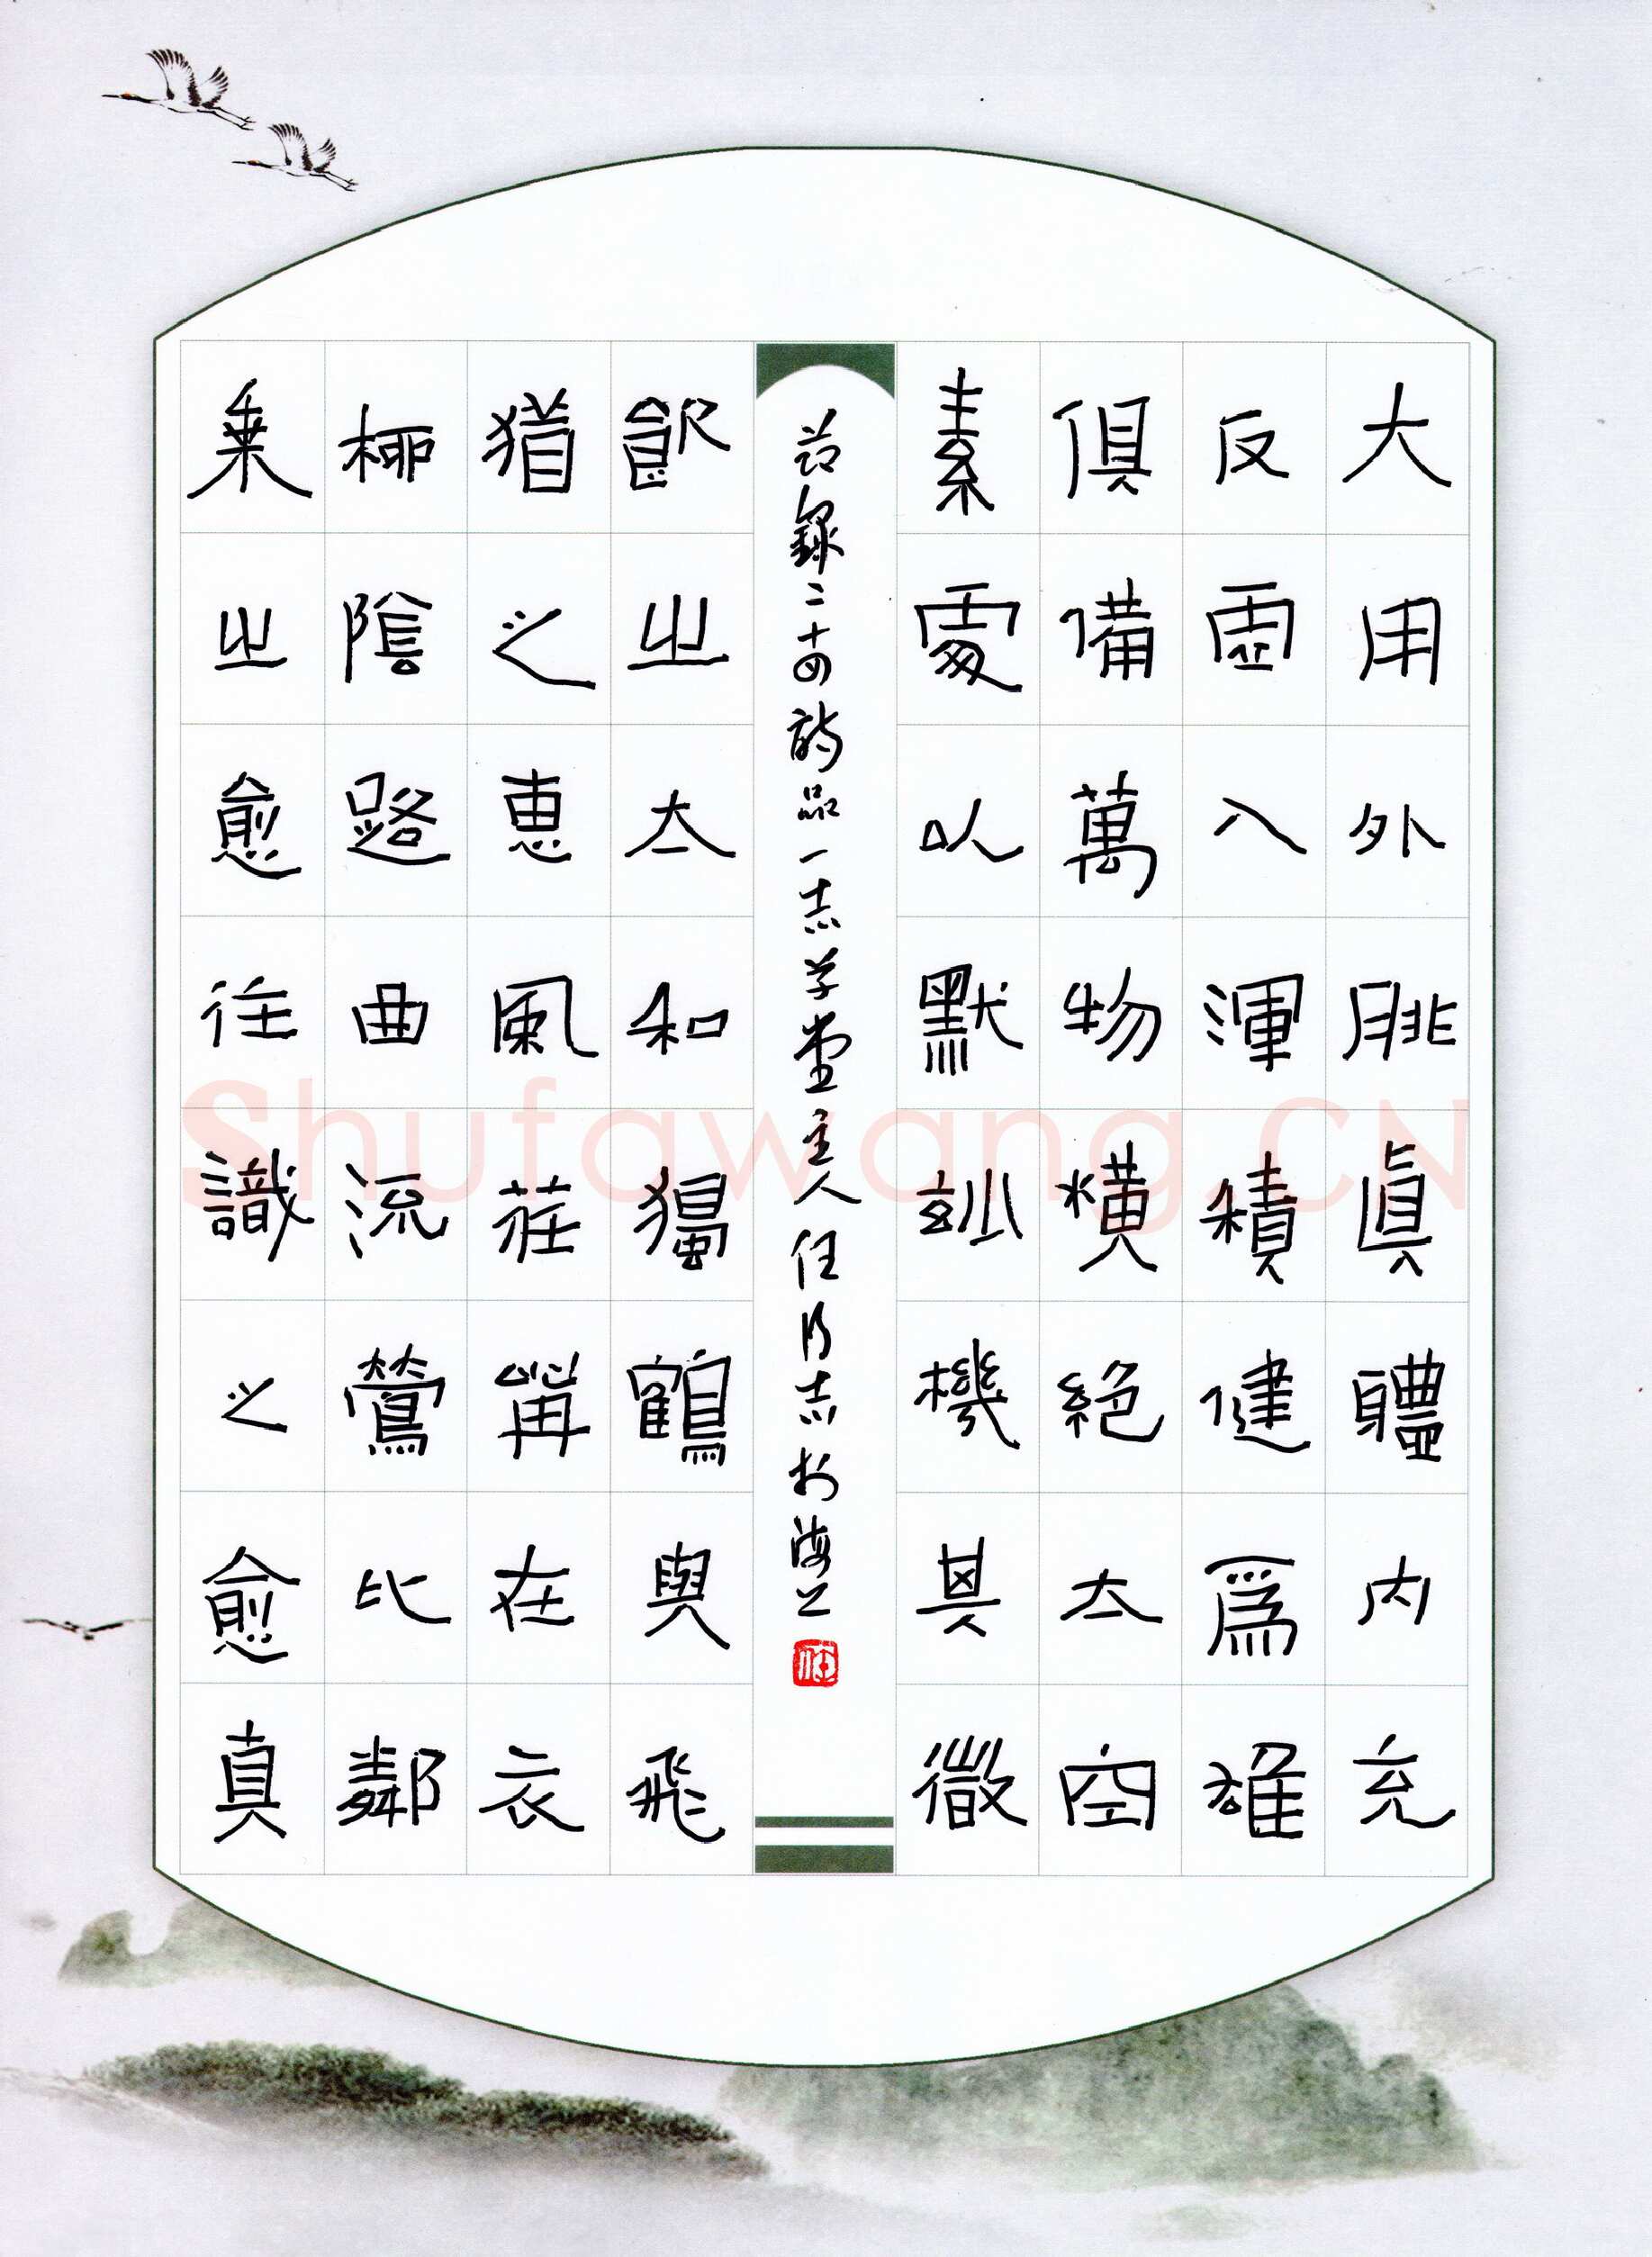 大用外腓眞體内充
反虛入渾積健爲雄
俱備萬物橫絕太空
素處以默妙機其微
节録二十四詩品一志学堂主人任志於海上
任
飲之太和獨鶴與飛
猶之惠風荏苒在衣
柳陰路曲流鶯比鄰
乘之愈往識之愈真
Shufawang.CN